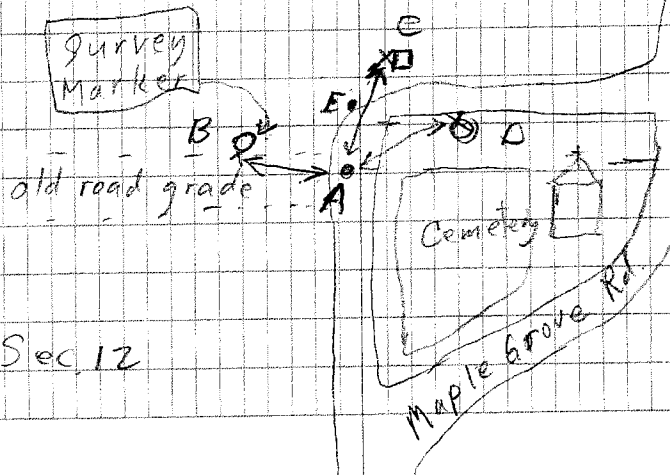 C
Survey
Marker
E
B
D
old road grade
A
Cemetery
Sec. 12
Maple Grove Rd.